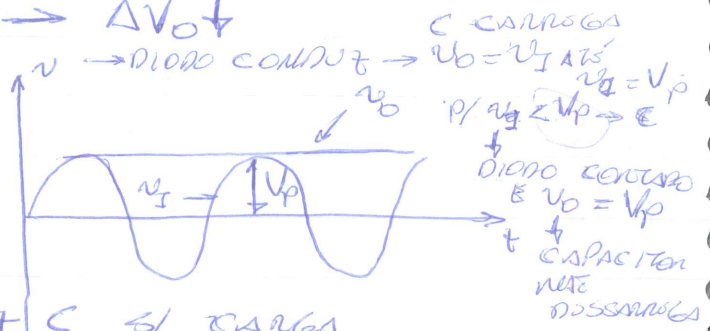 → ΔV₀↓
C CARREGA
→ DIODO CONDUZ → v₀ = v_I ATÉ
v_I = Vp
v
v₀
P/ v_I < Vp →
DIODO CORTADO
E v₀ = Vp
v_I → Vp
t
CAPACITOR
NÃO
DESCARREGA
C S/ CARGA